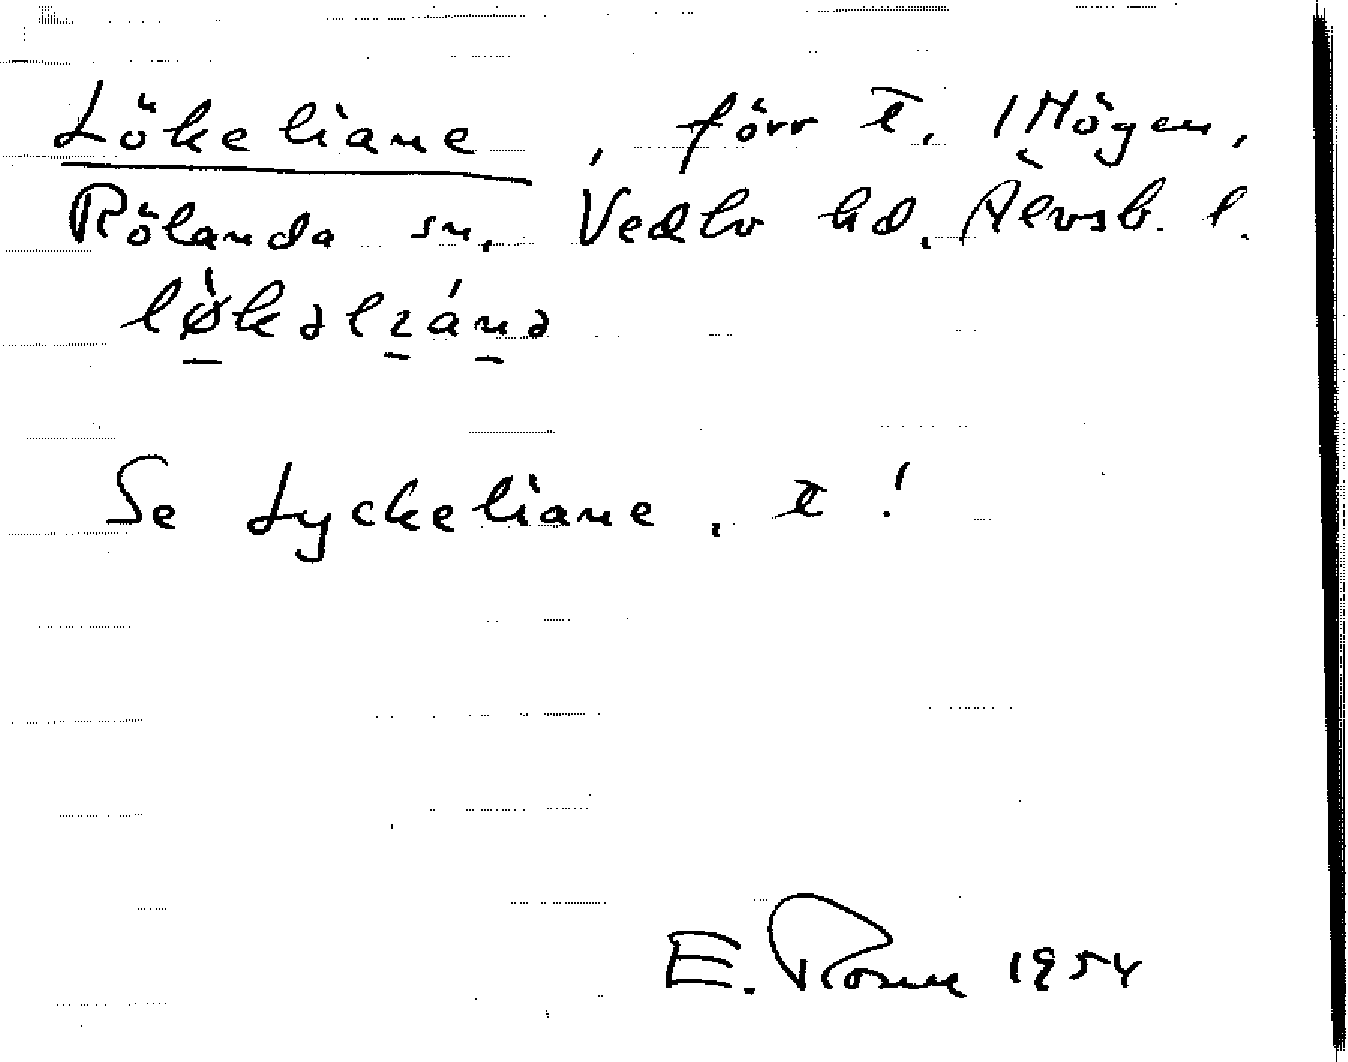 Lökeliane, förr t. Högen,
Rölanda sn, Vedbo hd. Älvsb. l.
Se Lyckeliane, t!
E. Rosne 1954